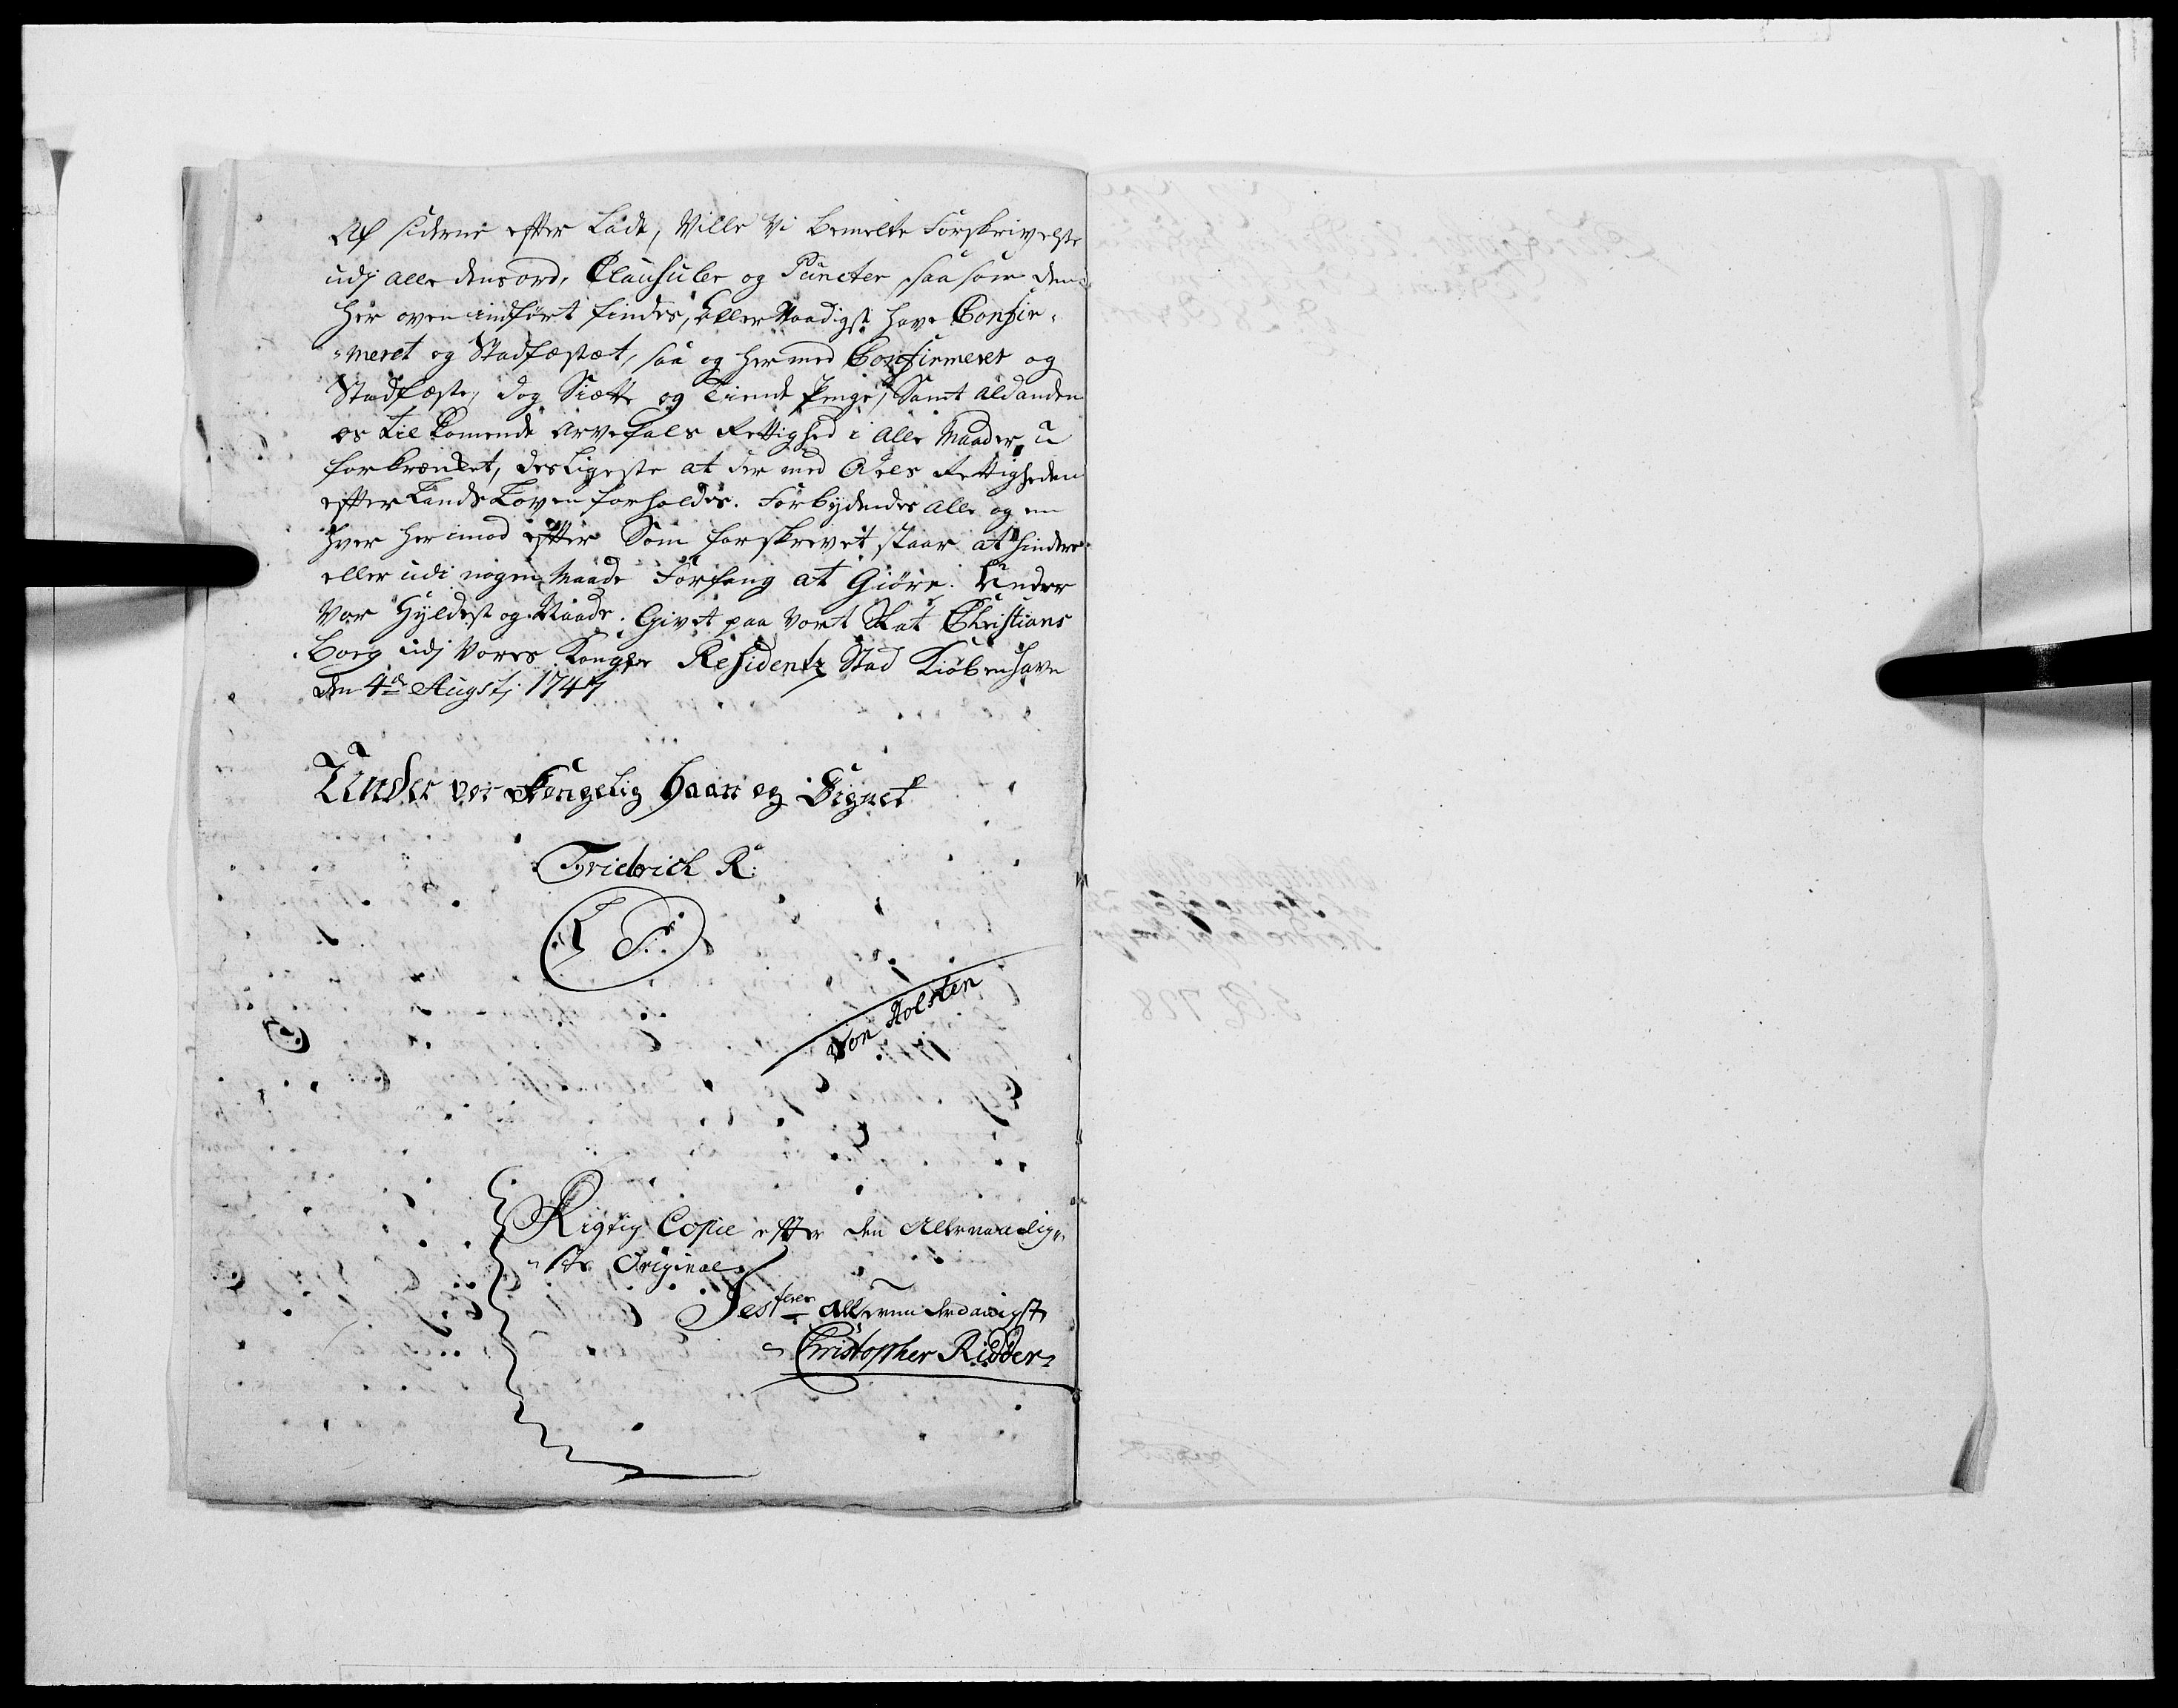 Af siderne efter Lade, Wille Vi bemelte Forskrivelse
udj alle dens ord, Clausuler og Puncter, saa som den
her oven indført findes, Allernaadigst have Confir-
-meret og Stadfæstet, saa og hermed Confirmerer og
Stadfæste, dog Siette og Tiende Penge, Samt ald anden
os tilkomende Arvefals Rettighed i Alle Maader u
forkrænket, desligeste at der med Odels Rettigheden
efter Lands Loven forholdes. Forbydendes Alle og en
hver her imod efter Som forskrevet staar at hindre
eller udi nogen Maade Forfang at Giøre. Under
Vor Hyldest og Naade. Givet paa Vort Slot Christians
Borg udj Vores Kongle Residentz Stad Kiøbenhavn
den 4de Augstj: 1747
Under vor Kongelig Haan og Signet
Fridrich R:
L S:
Von Holsten
Rigtig Copie efter den Allernaadig-
-ste Original
Testerer Allerunderdanigst
Christopher Ridder